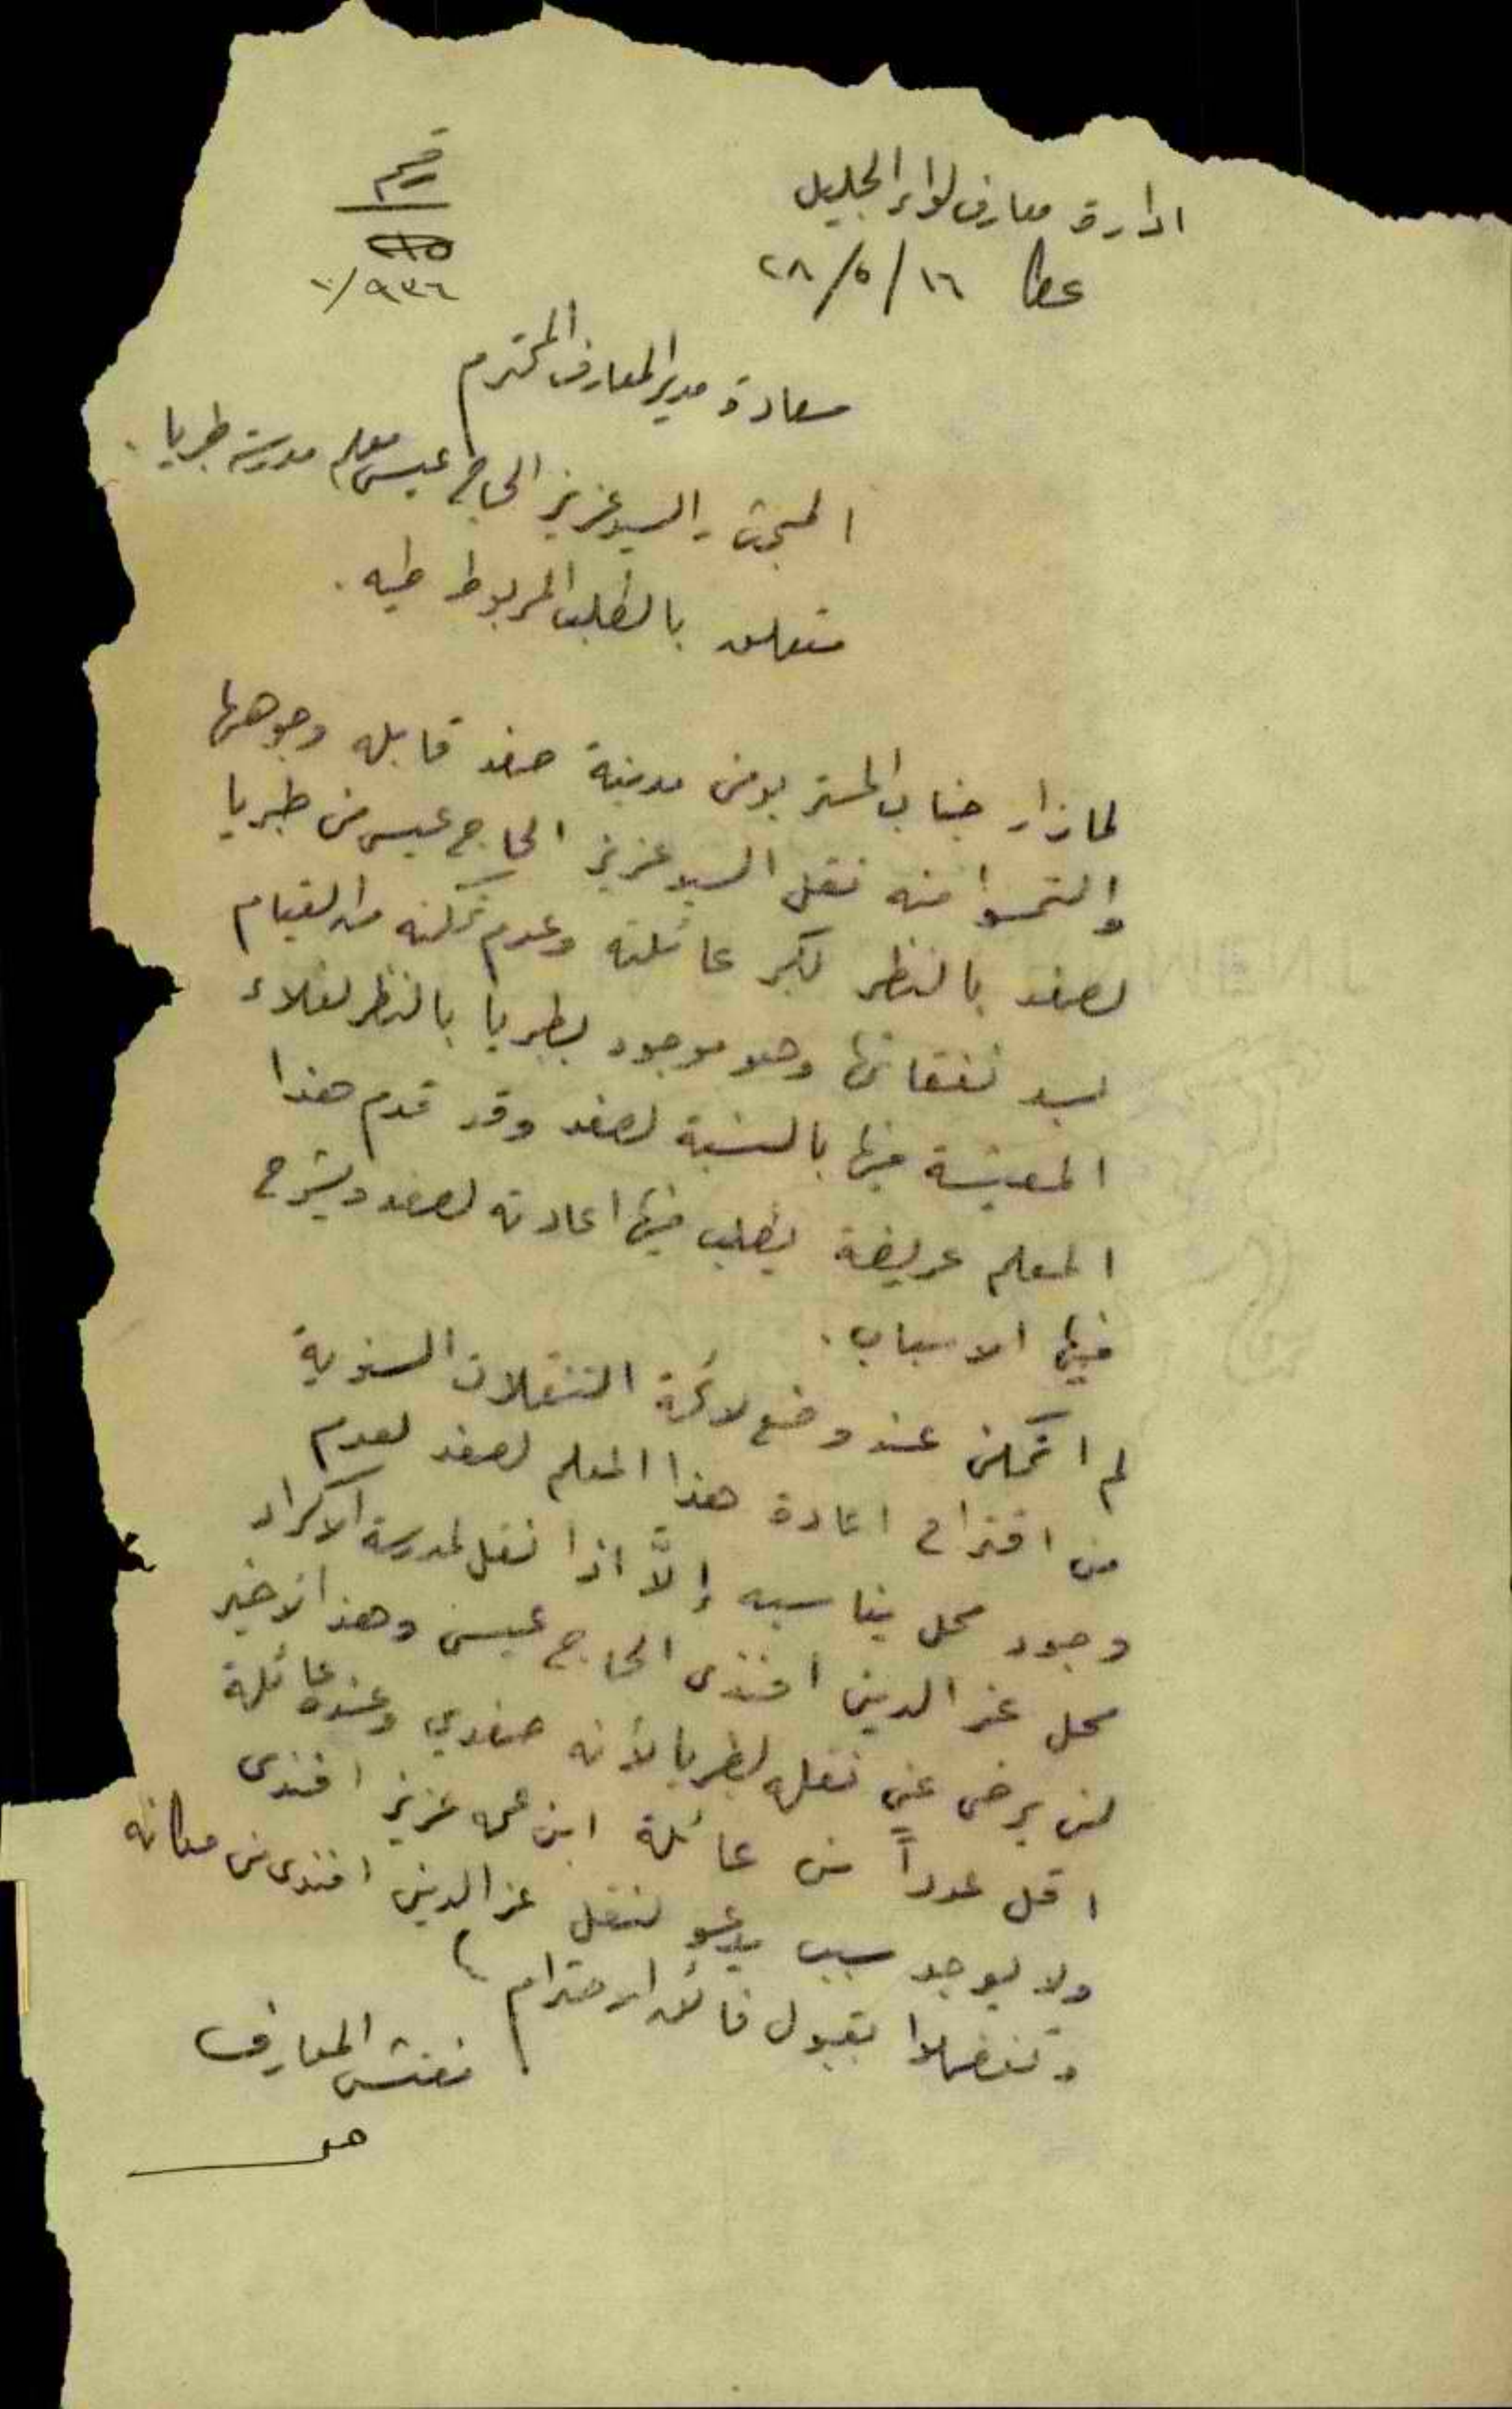 ادارة معارف لواء الجليل
عكا ١٦/٥/٢٨
رقم
٩٣٦/
سعادة مدير المعارف المحترم
المبحث - السيد عزيز الحاج عيسى معلم مدرسة طبريا .
متعلق بالطلب المربوط طيه .
لما زار جناب المستر بومن مدينة صفد قابله وجوهها
والتمسوا منه نقل السيد عزيز الحاج عيسى من طبريا
لصفد بالنظر لكبر عائلته وعدم تمكنه من القيام
بسد نفقاتها وهو موجود بطبريا بالنظر لغلاء
المعيشة فيها بالنسبة لصفد وقد قدم هذا
المعلم عريضة يطلب فيها اعادته لصفد ويشرح
فيها الاسباب .
لم اتمكن عند وضع لائحة التنقلات السنوية
من اقتراح اعادة هذا المعلم لصفد لعدم
وجود محل يناسبه إلاَّ اذا نقل لمدرسة الاكراد
محل عز الدين افندى الحاج عيسى وهذا الاخير
لن يرضى عن نقله لطبريا لأنه صفدي وعنده عائلة
اقل عدداً من عائلة ابن عمه عزيز افندى
ولا يوجد سبب يدعو لنقل عز الدين افندى من مكانه
وتفضلوا بقبول فائق الاحترام
مفتش المعارف